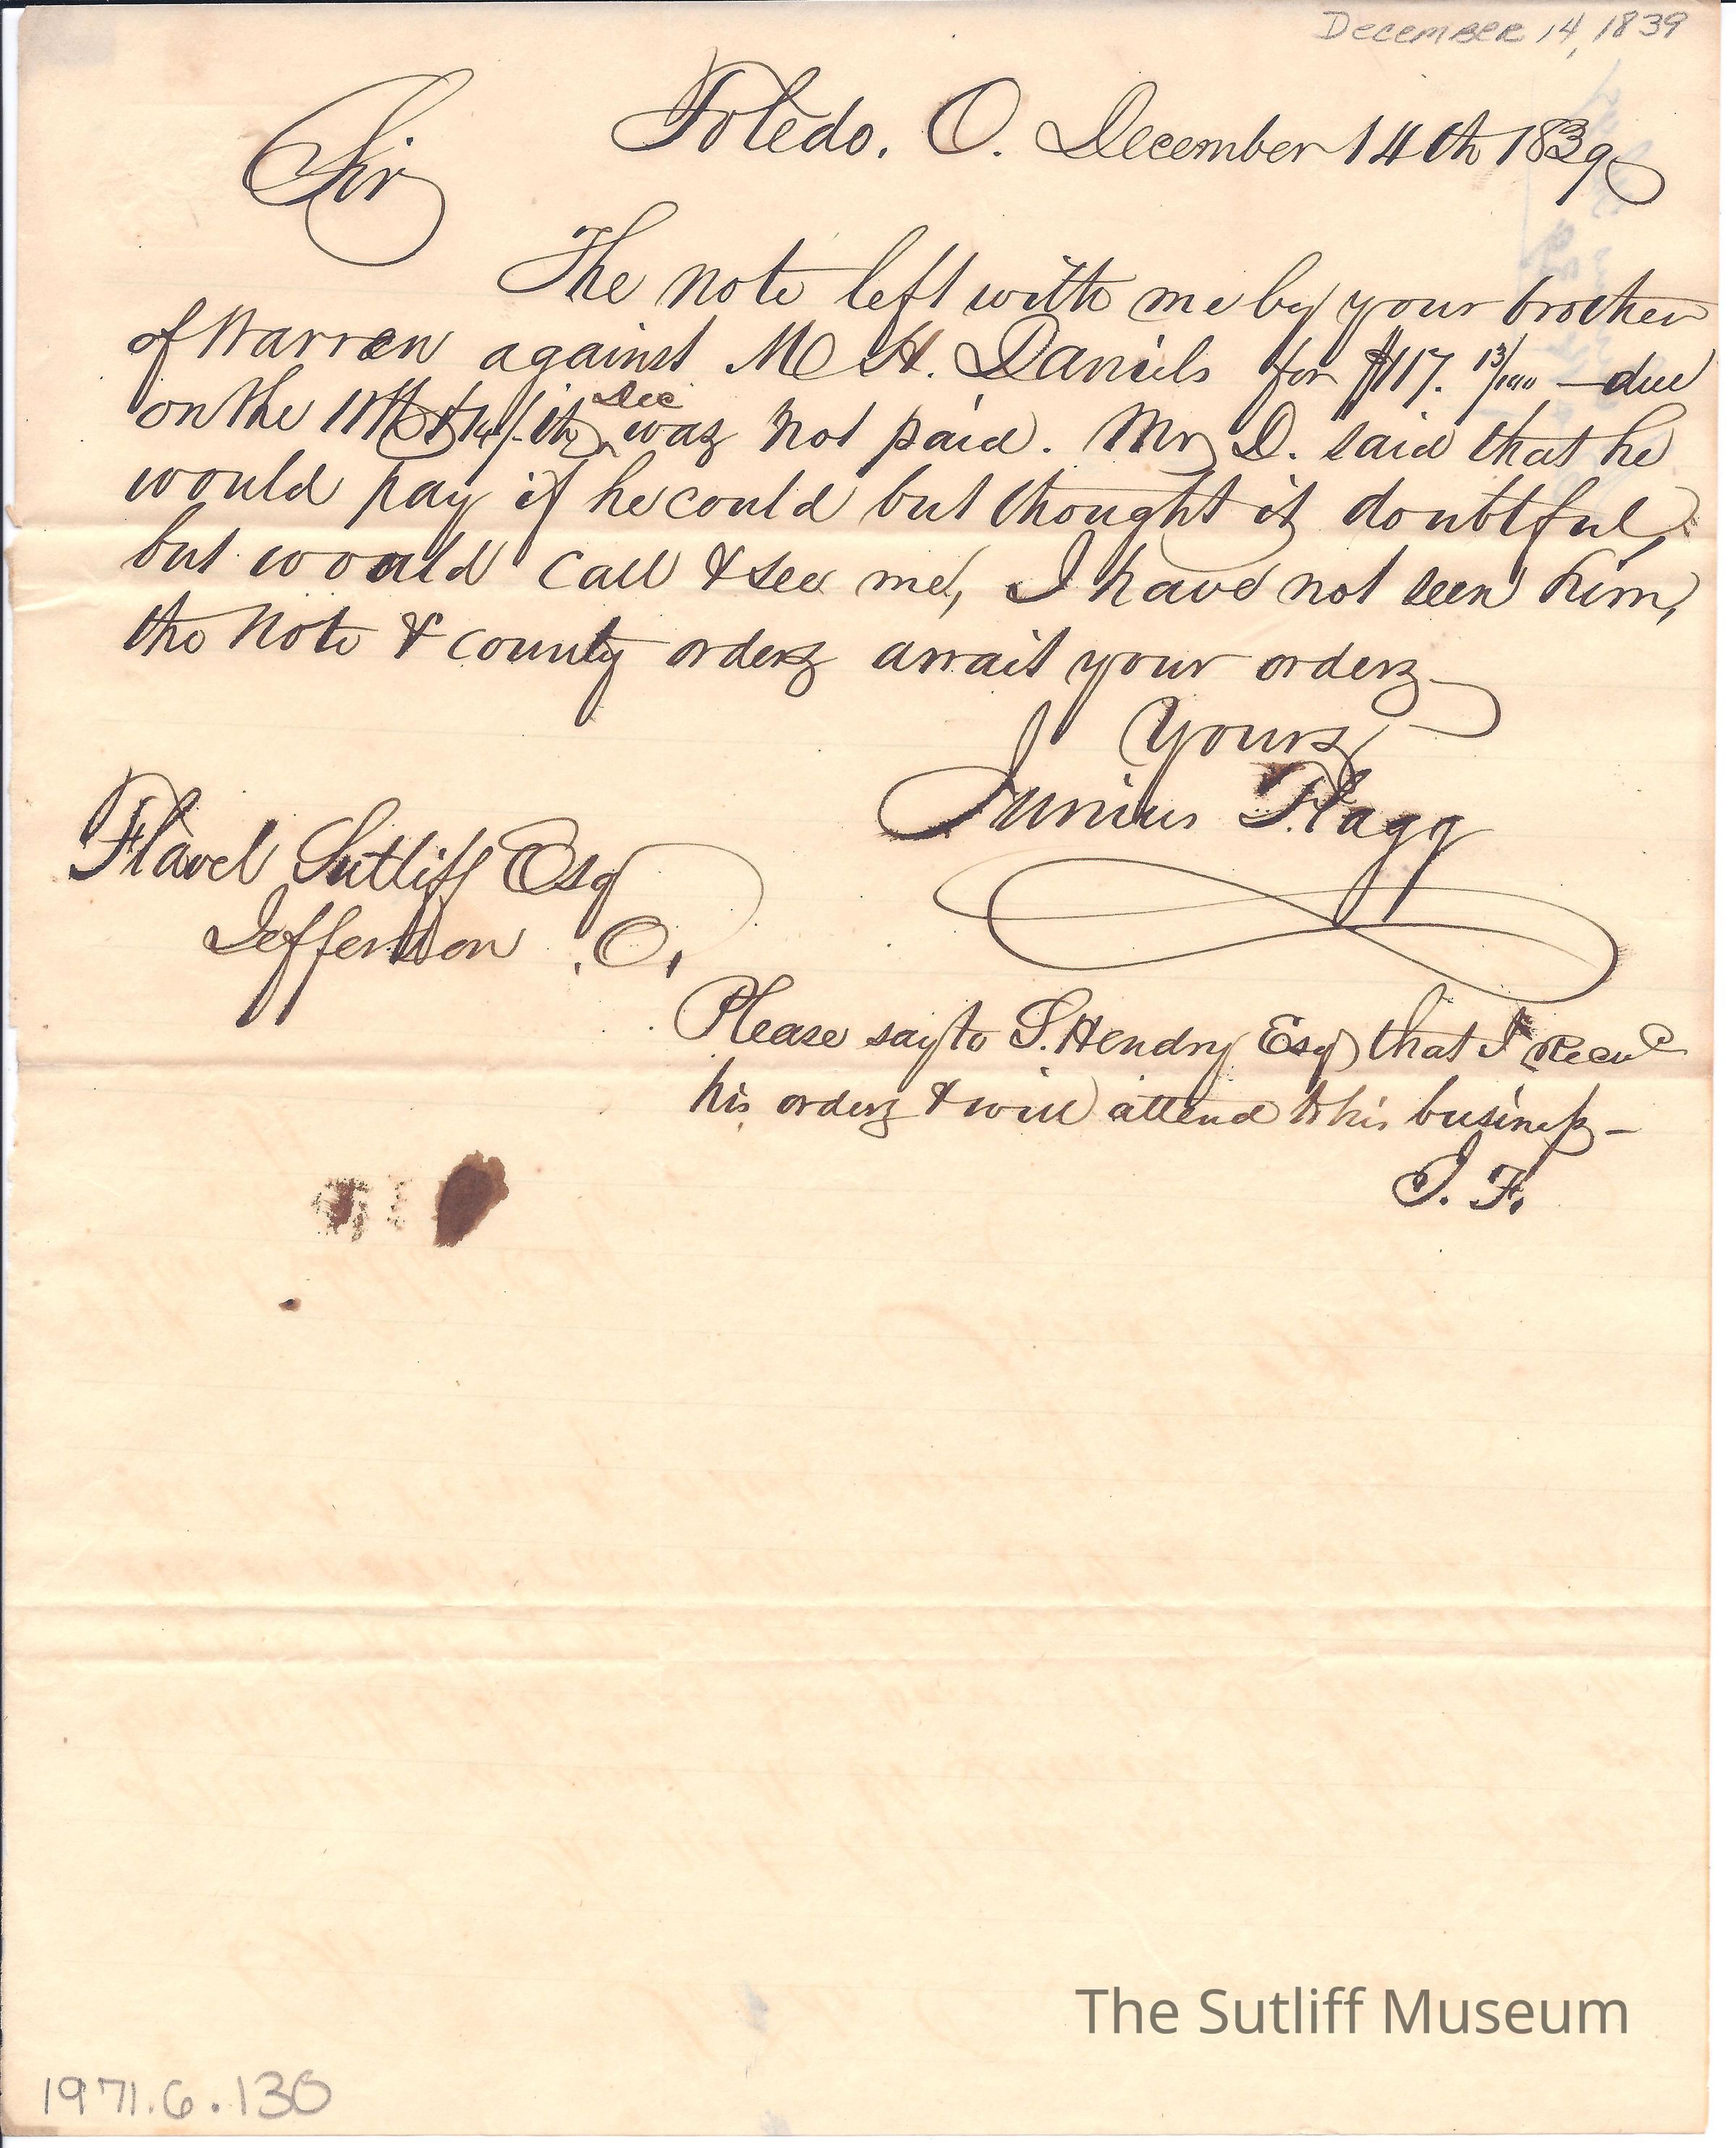 December 14, 1839
Toledo. O. December 14th 1839
Sir
The note left with me by your brother
of Warren against M H. Daniels for $117. 13/100 — due
on the 11th & 14/th Dec was not paid. Mr D. said that he
would pay if he could but thought it doubtful,
but would call & see me, I have not seen him,
the note & county orders await your orders
Yours
Junius Flagg
Flavel Sutliff Esq
Jefferson . O.
Please say to S. Hendry Esq that I Recvd
his orders & will attend to his business —
J. F.
The Sutliff Museum
1971.6.130